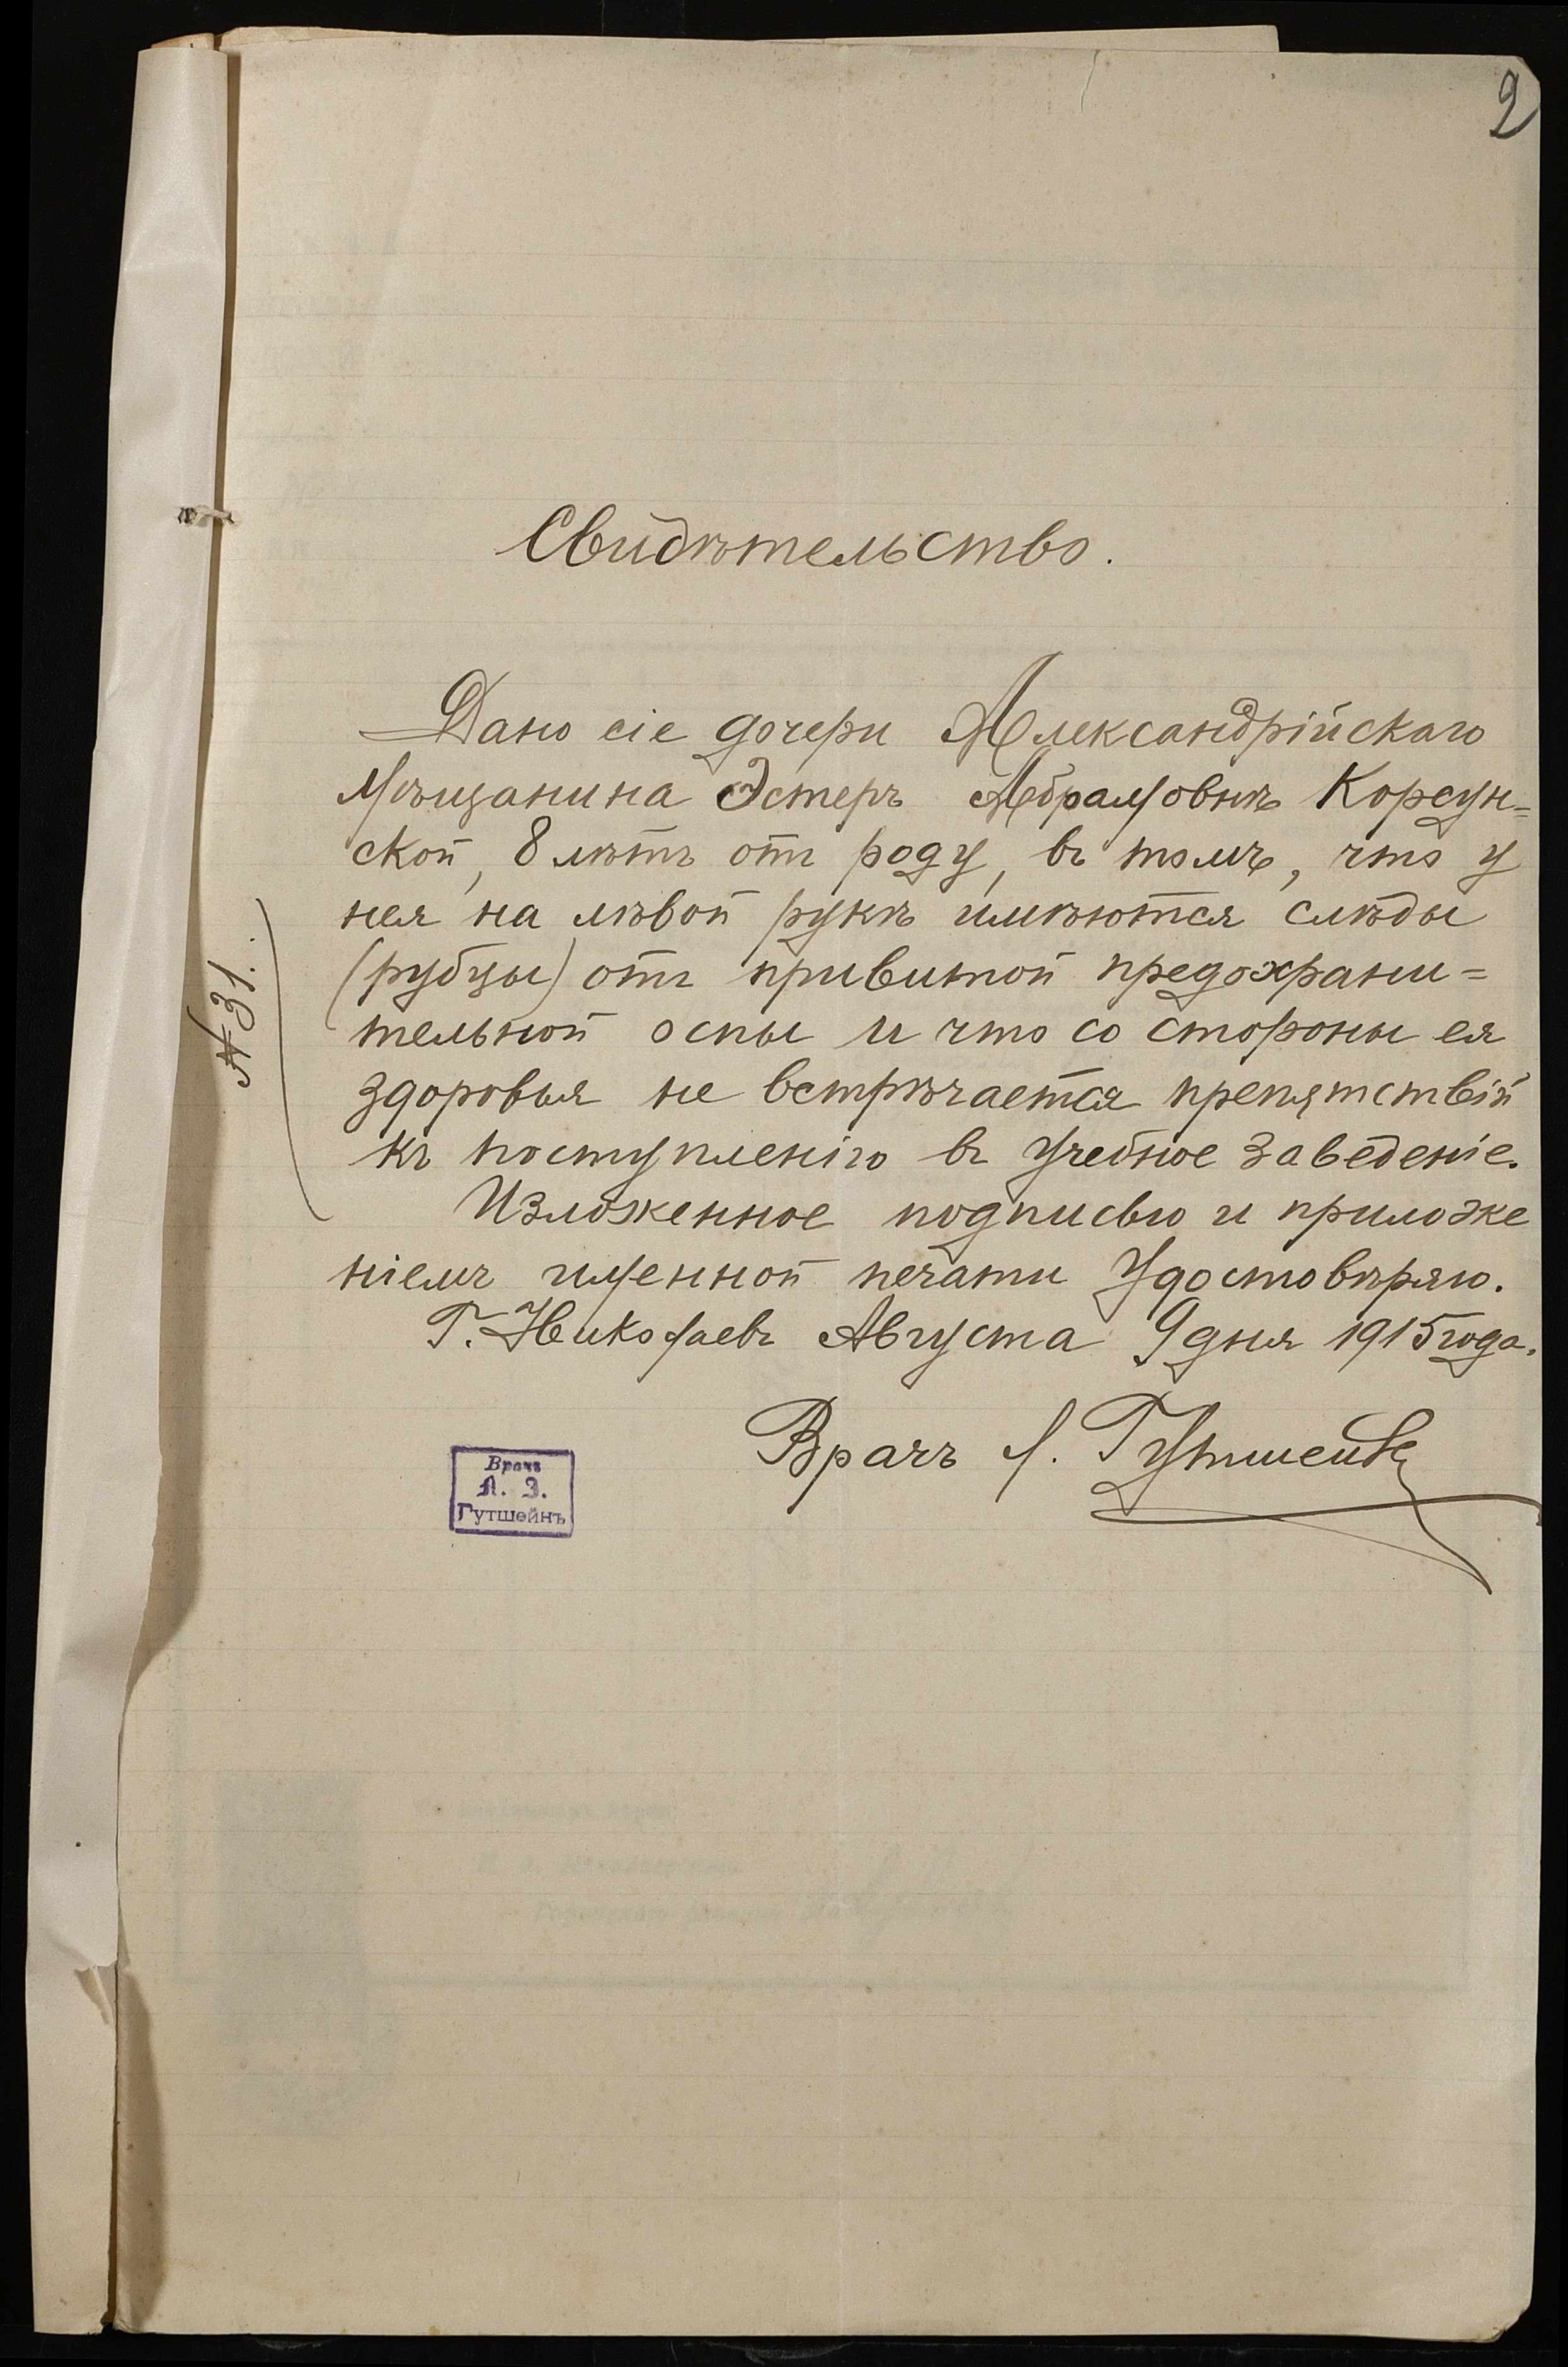 2
Свидѣтельство.
Дано сіе дочери Александрійскаго
мѣщанина Эстеръ Абрамовнѣ Корсун=
ской, 8 лѣтъ отъ роду, въ томъ, что у
нея на лѣвой рукѣ имѣются слѣды
(рубцы) отъ привитой предохрани=
тельной оспы и что со стороны ея
здоровья не встрѣчается препятствій
къ поступленію въ учебное заведеніе.
Изложенное подписью и приложе
ніемъ именной печати удостовѣряю.
Г. Николаевъ Августа 9 дня 1915 года.
Врачъ Л. Гутшейнъ
№ 31.
Врачъ
Л. З.
Гутшейнъ